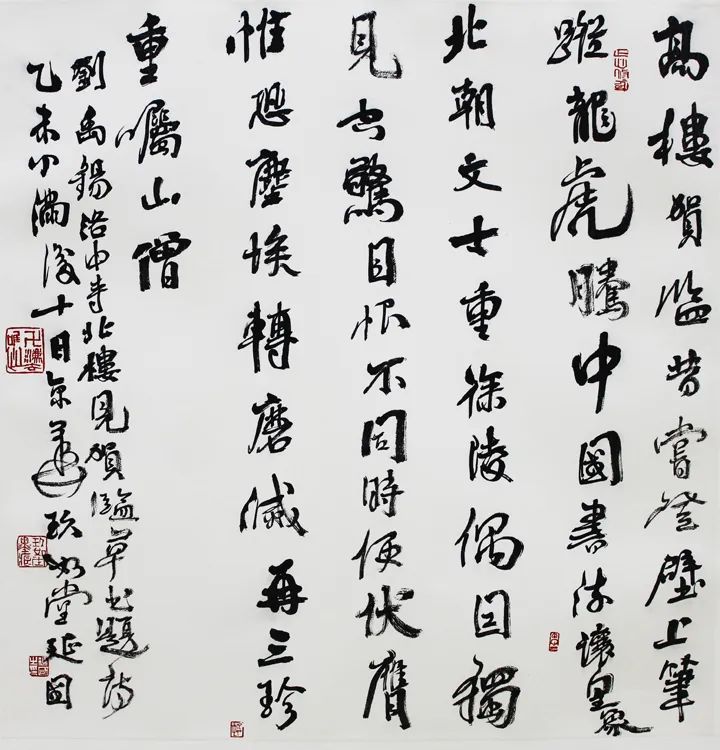 高樓賀監昔嘗登壁上筆
蹤龍虎騰中國書流讓皇象
北朝文士重徐陵偶因獨
見空驚目恨不同時便伏膺
惟恐塵埃轉磨滅再三珍
重囑山僧
劉禹錫洛中寺北樓見賀監草書題詩
乙未小滿後十日京華玖如堂延